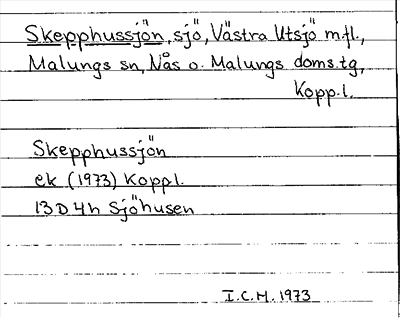 Skepphussjön, sjö, Västra Utsjö m.fl.,
Malungs sn, Nås o. Malungs doms.tg,
Kopp.l.
Skepphussjön
ek (1973) Koppl.
13D4h Sjöhusen
I.C.H. 1973